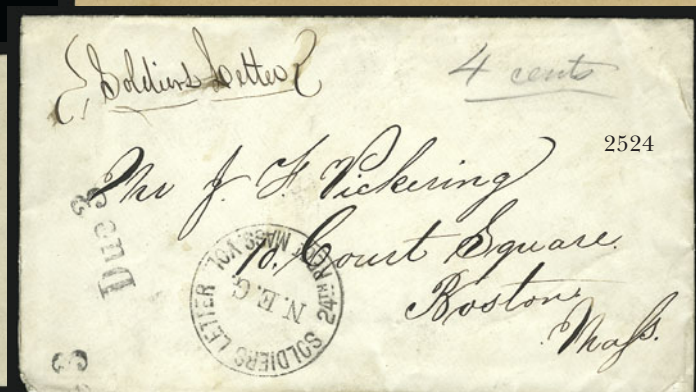 Soldiers Letter
4 cents
2524
Mr J. F. Vickering
10. Court Square.
Boston,
Mass.
Due 3
SOLDIERS LETTER 24TH REGT MASS. VOL.
N. E. G.
3